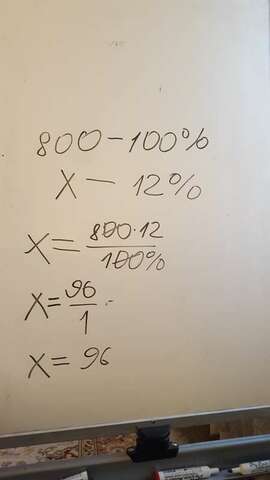 800 - 100%
X - 12%
X = 800·12 / 100%
X = 96 / 1
X = 96